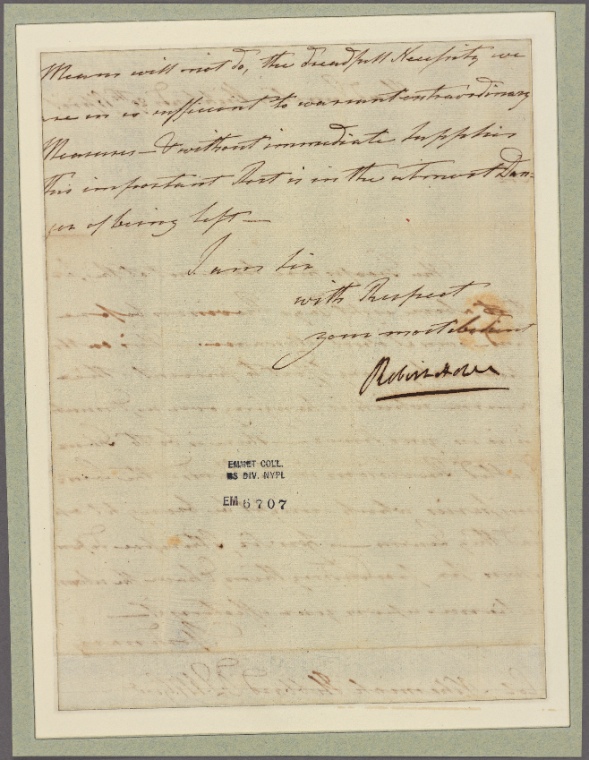 Means will not do, the dreadfull Necessity we
re in is sufficient to warrant extraordinary
Measures—& without immediate Supplies
this important Post is in the utmost Dan-
ger of being left—
I am Sir
with Respect
your most obedient
Robert Howe
EMMET COLL.
MS DIV. NYPL
EM 6707